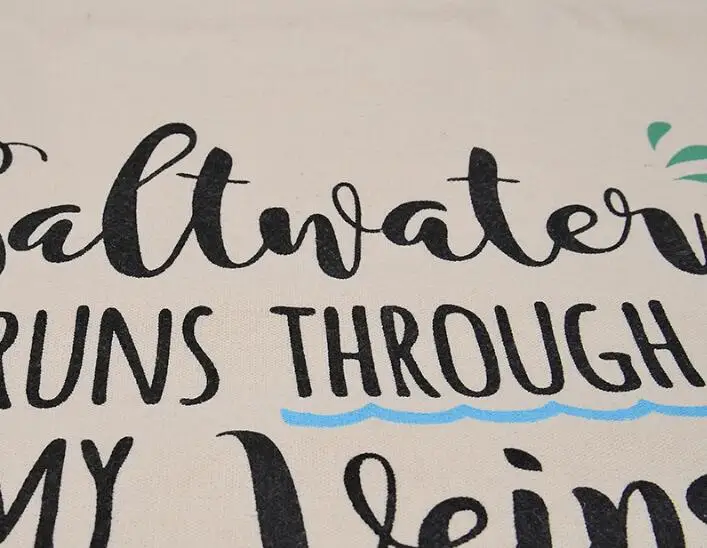 Saltwater
RUNS THROUGH
MY Veins